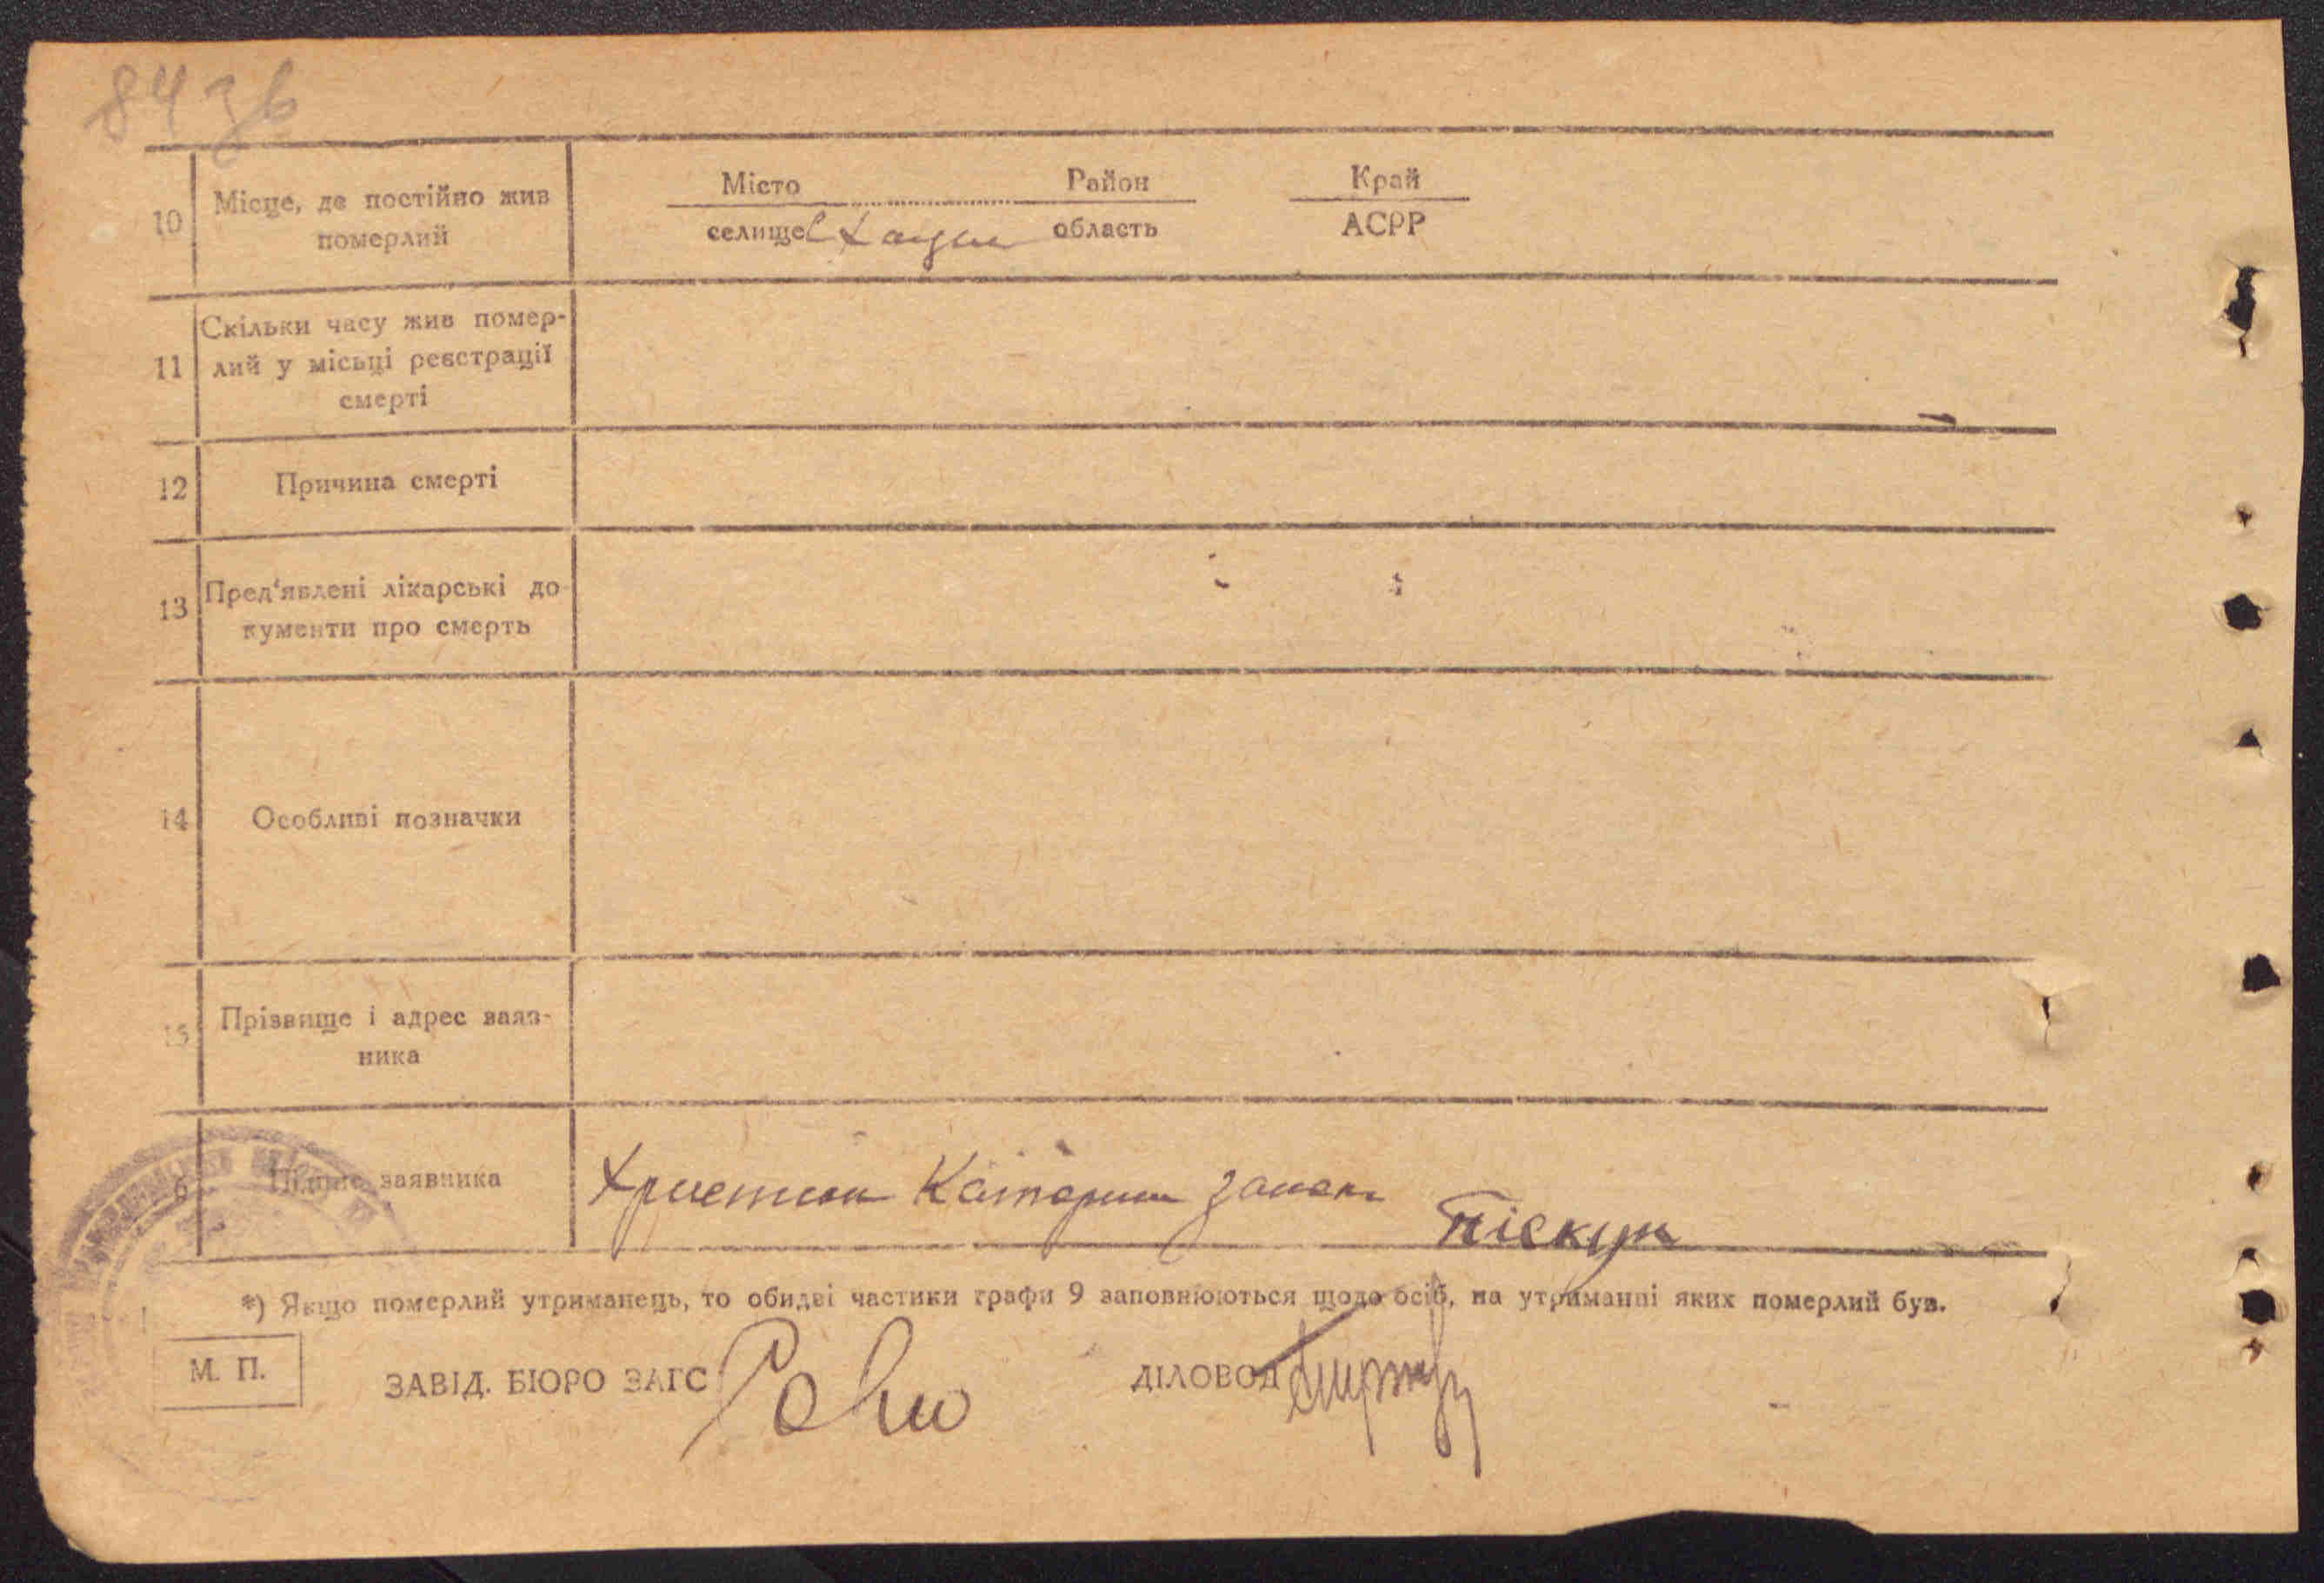 84 зв
10
Місце, де постійно жив
померлий
Місто Район Край
селище область АСРР
11
Скільки часу жив помер-
лий у місьці реєстрації
смерті
12
Причина смерті
13
Пред'явлені лікарські до
кументи про смерть
14
Особливі позначки
15
Прізвище і адрес заяв-
ника
6
Підпис заявника
Катерин
Піскун
*) Якщо померлий утриманець, то обидві частики графи 9 заповнюються щодо осіб, на утриманні яких померлий був.
М. П.
ЗАВІД. БЮРО ЗАГС
ДІЛОВОД